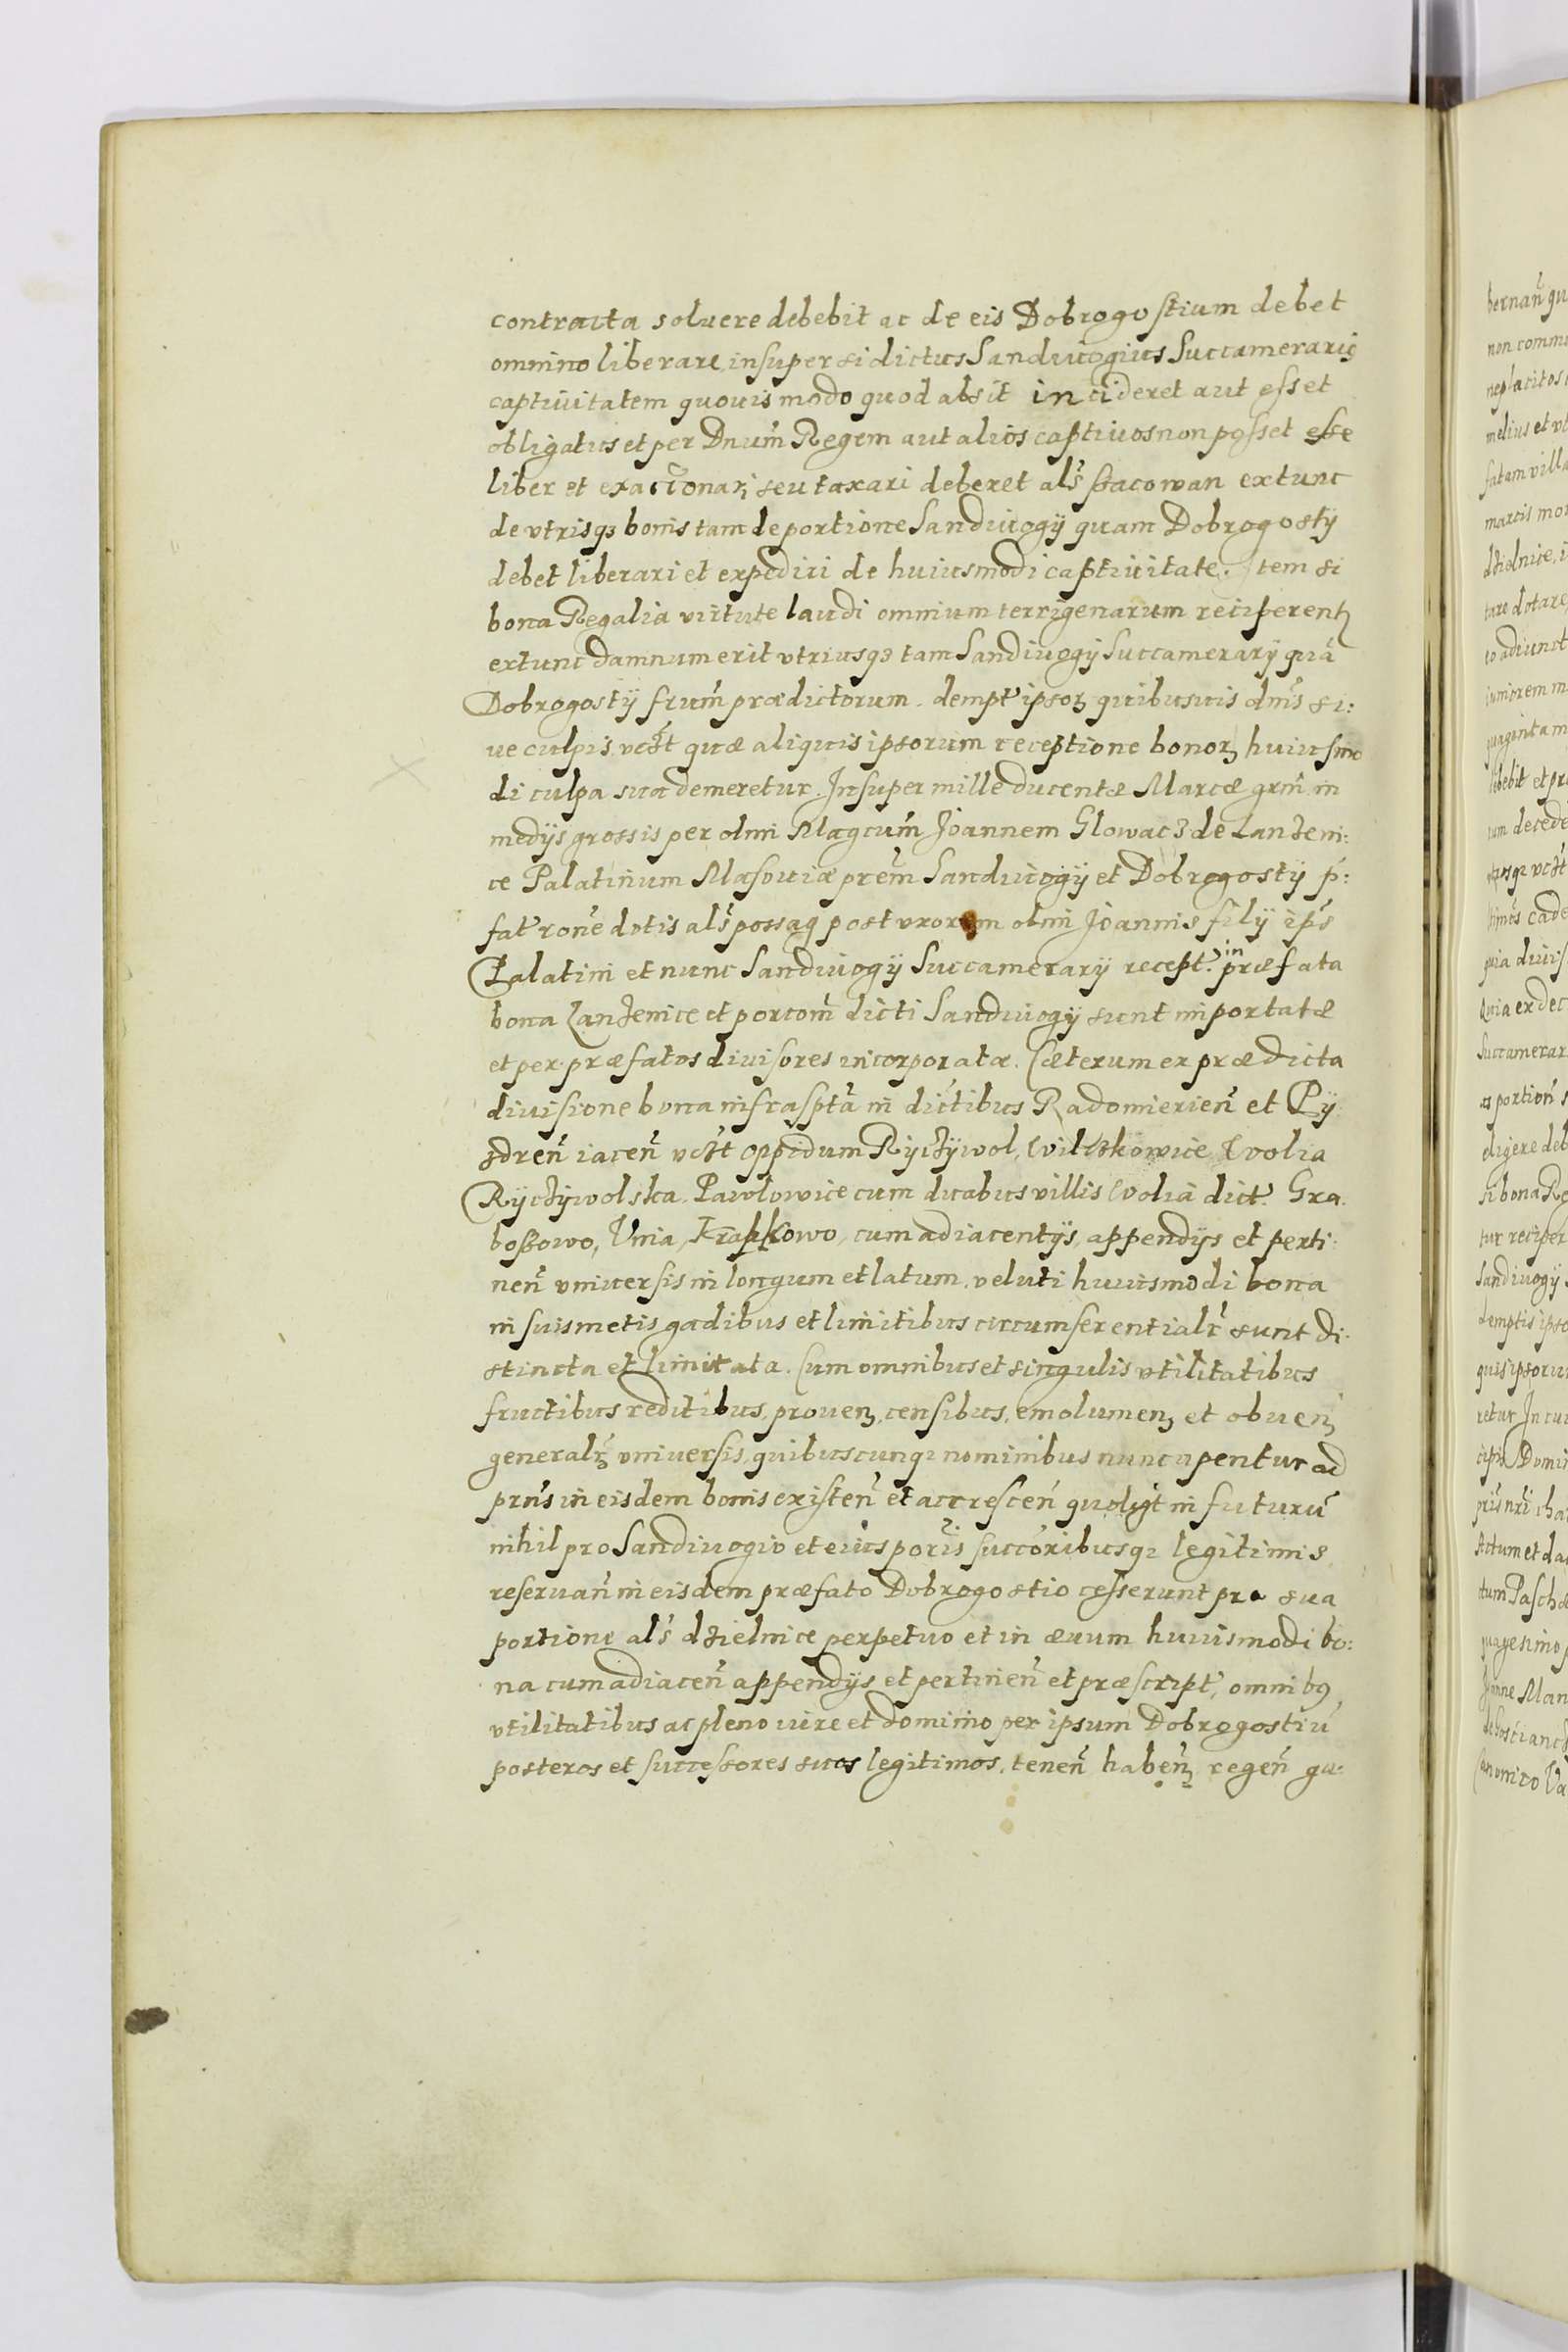 contracta soluere debebit ac de eis Dobrogostium debet
omnino liberare, insuper si dictus Sandiuogius Succamerarius
captiuitatem quouis modo quod absit incideret aut esset
obligatus et per Dnum̃ Regem aut alios captiuos non posset esse
liber et exactionari seu taxari deberet als̃ ssacowan extunc
de vtrisqʒ bonis tam de portione Sandiuogÿ quam Dobrogostÿ
debet liberari et expediri de huiusmodi captiuitate. Item si
bona Regalia virtute laudi omnium terrigenarum reciperentʒ
extunc damnum erit vtriusqʒ tam Sandiuogÿ Succamerarÿ quã
Dobrogostÿ frum̃ prædictorum. dempt' ipsoʒ quibusuis dnis̃ si:
ue culpis vcʒt quæ aliquis ipsorum receptione bonoʒ huiusmo
di culpa sua demeretur. Insuper mille ducentæ Marcæ grm̃ in
medÿs grossis per olim Magcum̃ Joannem Glowacʒ de Lanʒeni:
ce Palatinum Masouiæ prem̃ Sandiuogÿ et Dobrogostÿ p̃:
fat' rone̅ dotis als̃ possag post vxorem olim Joannis filÿ ip̃s
Palatini et nunc Sandiuogÿ Succamerarÿ recept. in præfata
bona Lanʒenice et porcom̃ dicti Sandiuogÿ sunt importatæ
et per præfatos diuisores incorporatæ. Cæterum ex prædicta
diuisione bona infraspta̅ in dictibus Radomierien̅ et Pÿ
ʒdren̅ iacen̅ vcʒt oppidum Rÿcʒÿwol, Wilcʒkowice Wolia
Rÿcʒÿwolska. Pawlowice cum duabus villis Wolia dict. Gra.
bossowo, Vnia, cum adiacentÿs, appendÿs et perti:
nen̅ vniuersis in longum et latum, veluti huiusmodi bona
in suis metis gadibus et limitibus circumferentialr̃ sunt di.
stincta et limitata. Cum omnibus et singulis vtilitatibus
fructibus reditibus, prouenʒ, censibus, emolumenʒ et obuenʒ
generalrʒ vniuersis, quibuscunqʒ nominibus nuncupentur ad
prñs in eisdem bonis existen̅ et accrescen̅ quolibet in futurũ
nihil pro Sandiuogio et eius poris̃ succoribusqʒ legitimis
reseruan̅ in eisdem præfato Dobrogostio cesserunt pro sua
portione als̃ dʒielnice perpetuo et in æuum huiusmodi bo:
na cum adiacen̅ appendÿs et pertinen̅ et præscript, omnibꝰ
vtilitatibus ac pleno iure et dominio per ipsum Dobrogostiũ
posteros et successores suos legitimos. tenen̅ habenʒ regen̅ gu: